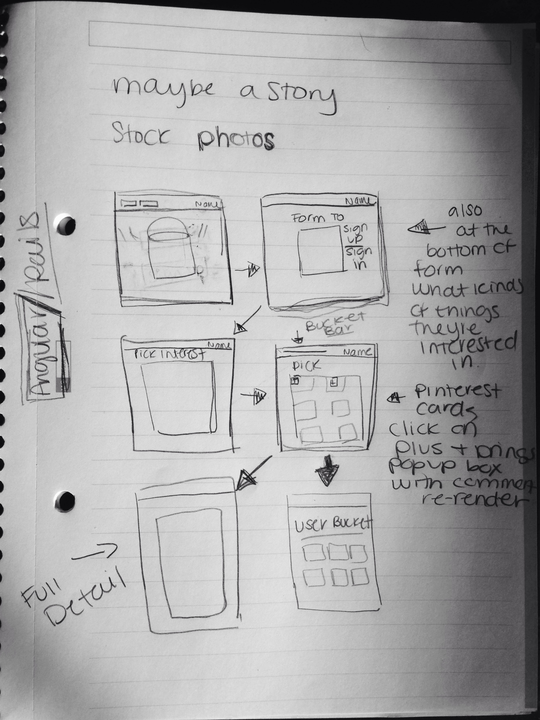 maybe a story
Stock photos
Angular/Rails
Name
Name
Form To
sign
up
sign
in
also
at the
bottom of
form
what kinds
of things
they're
interested
in
Bucket
Bar
Pick Interest
Name
Name
PICK
Pinterest
cards
click on
plus + brings
popup box
with comment
re-render
User Bucket
Full
Detail